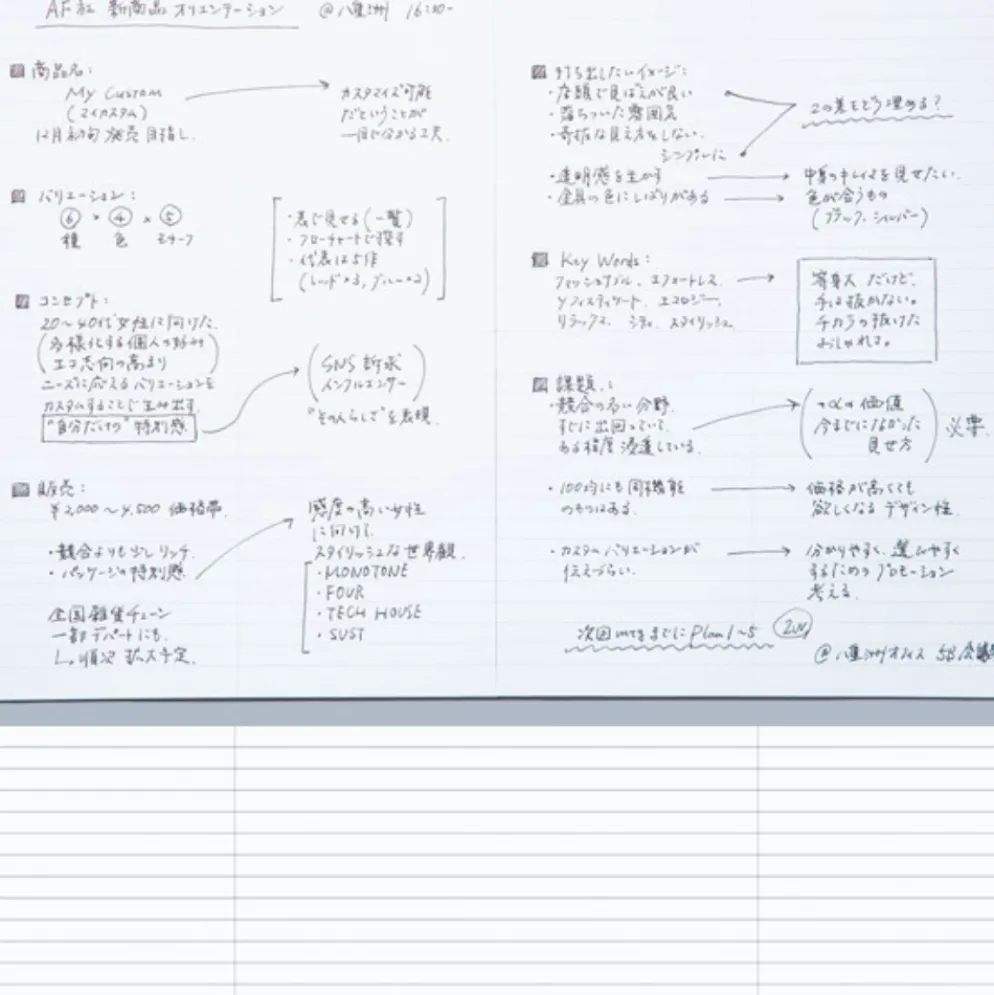 AF社 新商品 オリエンテーション @八重洲 16:30-
■ 商品名:
My Custom
(マイカスタム)
12月初旬 発売目指し.
カスタマイズ可能
だということが
一目で分かる工夫.
■ バリエーション:
⑥ × ④ × ⑤
種 色 モチーフ
・表で見せる(一覧)
・フローチャートで探す
・代表は5作
(レッド×3, ブルー×2)
■ コンセプト:
20〜40代女性に向けた.
多様化する個人の好み
エコ志向の高まり
ニーズに応えるバリエーションを
カスタムすることで生み出す.
"自分だけの"特別感
(SNS 訴求
インフルエンサー)
"その人らしさ"を表現.
■ 販売:
¥2,000〜4,500 価格帯.
・競合よりも少しリッチ.
・パッケージの特別感
全国雑貨チェーン
一部デパートにも.
↳順次 拡大予定.
感度の高い女性
に向けて
スタイリッシュな世界観.
・MONOTONE
・FOUR
・TECH HOUSE
・SUST
■ 打ち出したいイメージ:
・店頭で見ばえが良い
・落ちついた雰囲気
・奇抜な見え方をしない.
シンプルに
2の差をどう埋める?
・透明感を生かす
中身のキレイさを見せたい.
・金具の色にしばりがある
色が合うもの
(ブラック、シルバー)
■ Key Words:
フィッショナブル、エフォートレス
ソフィスティケート、エコロジー、
リラックス、シティ、スタイリッシュ
等身大 だけど、
手は抜かない。
チカラの抜けた
おしゃれさ。
■ 課題:
・競合の多い分野.
すでに出回っていて、
ある程度 浸透している.
+αの価値
今までになかった
見せ方
必要.
・100均にも同機能
のものはある.
価格が高くても
欲しくなる デザイン性.
・カスタムバリエーションが
伝えづらい.
分かりやすく、選びやすく
するための プロモーション
考える.
次回mtgまでに Plan 1〜5
@八重洲オフィス 5B会議